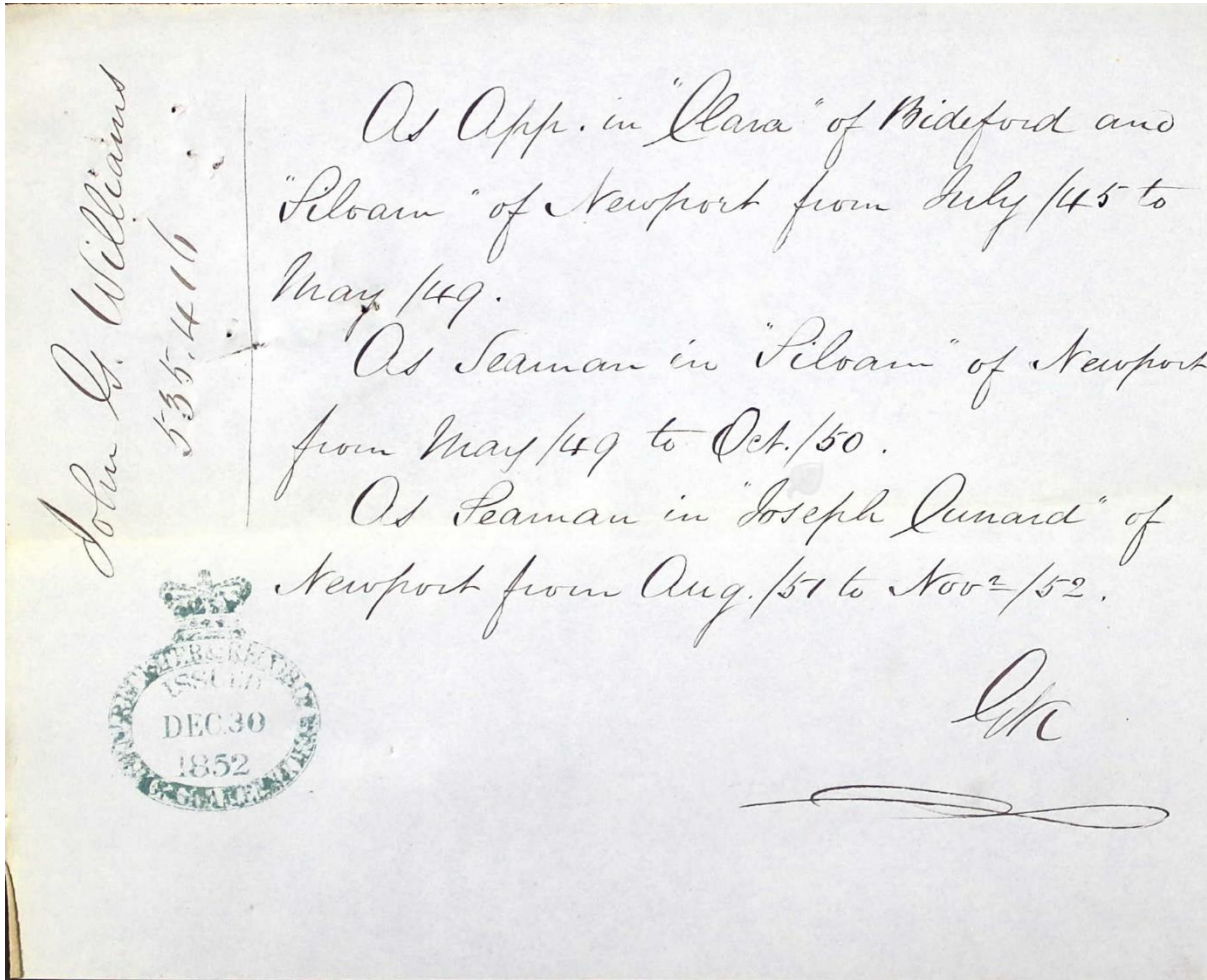 John G. Williams
535.416
As App. in "Clara" of Bideford and
"Siloam" of Newport from July /45 to
May /49.
As Seaman in "Siloam" of Newport
from May /49 to Oct. /50.
As Seaman in "Joseph Cunard" of
Newport from Aug. /51 to Novr /52.
GK
ISSUED
DEC. 30
1852